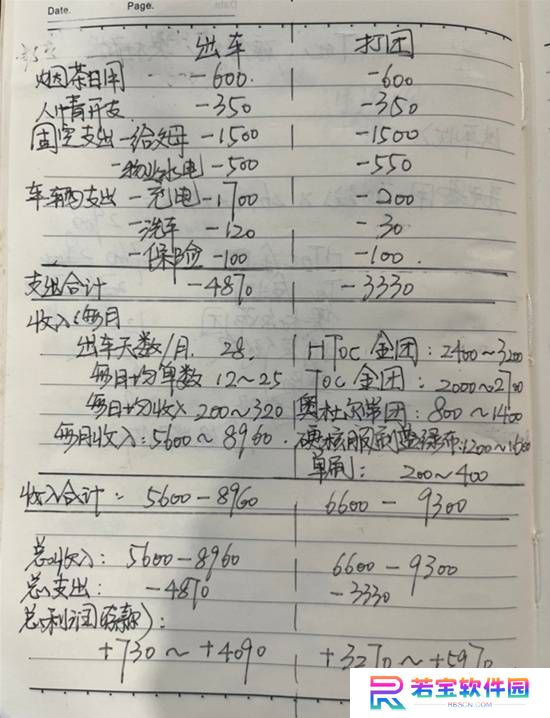 Date. Page. Date.
出车 打团
烟茶日用 -600 -600
人情开支 -350 -350
固定支出-给父母 -1500 -1500
-物业水电 -500 -550
车辆支出-充电 -1700 -200
-洗车 -120 -30
-保险 -100 -100
支出合计 -4870 -3330
收入(每月
出车天数/月 28. HToc 金团: 2400~3200
每日均单数 12~25 Toc 金团: 2000~2700
每日均收入 200~320 奥杜尔单团: 800~1400
每月收入: 5600~8960. 硬核服制蓝绿布:1200~1600
单刷: 200~400
收入合计: 5600-8960 6600-9300
总收入: 5600-8960 6600-9300
总支出: -4870 -3330
总利润(存款):
+730~+4090 +3270~+5970
若宝软件园
RBSCN.COM